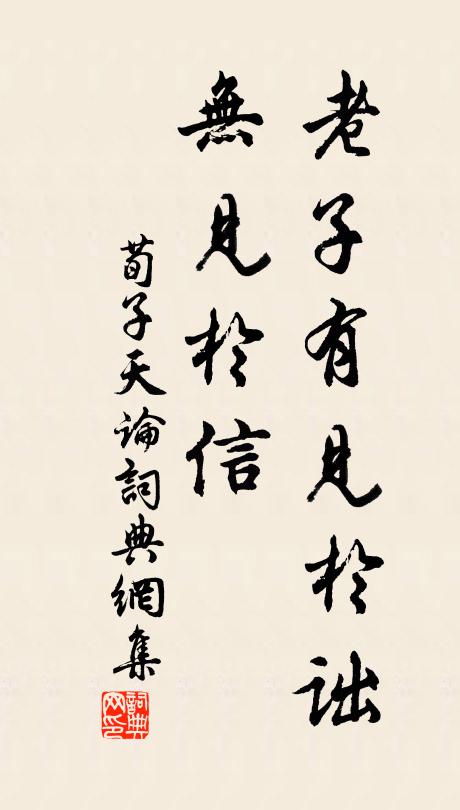 老子有見於詘
無見於信
荀子天論詞典網集
詞典网印